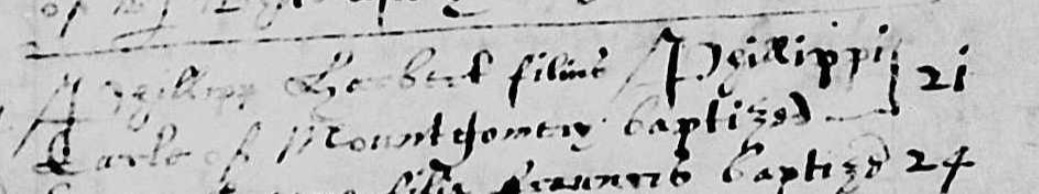 of
Phillipp Herbert filius Phillippi 21
Earle of Mountgomery baptized
filia Frauncis baptized 24